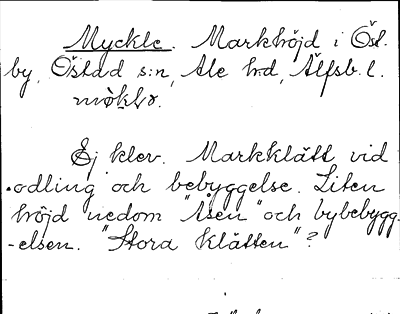 Myckle. Markhöjd i Öst.
by, Östad s:n, Ale hd, Älfsb. l.
møklə.
Ej klev. Markklätt vid
odling och bebyggelse. Liten
höjd nedom "Åsen" och bybebygg-
-elsen. "Stora Klätten"?